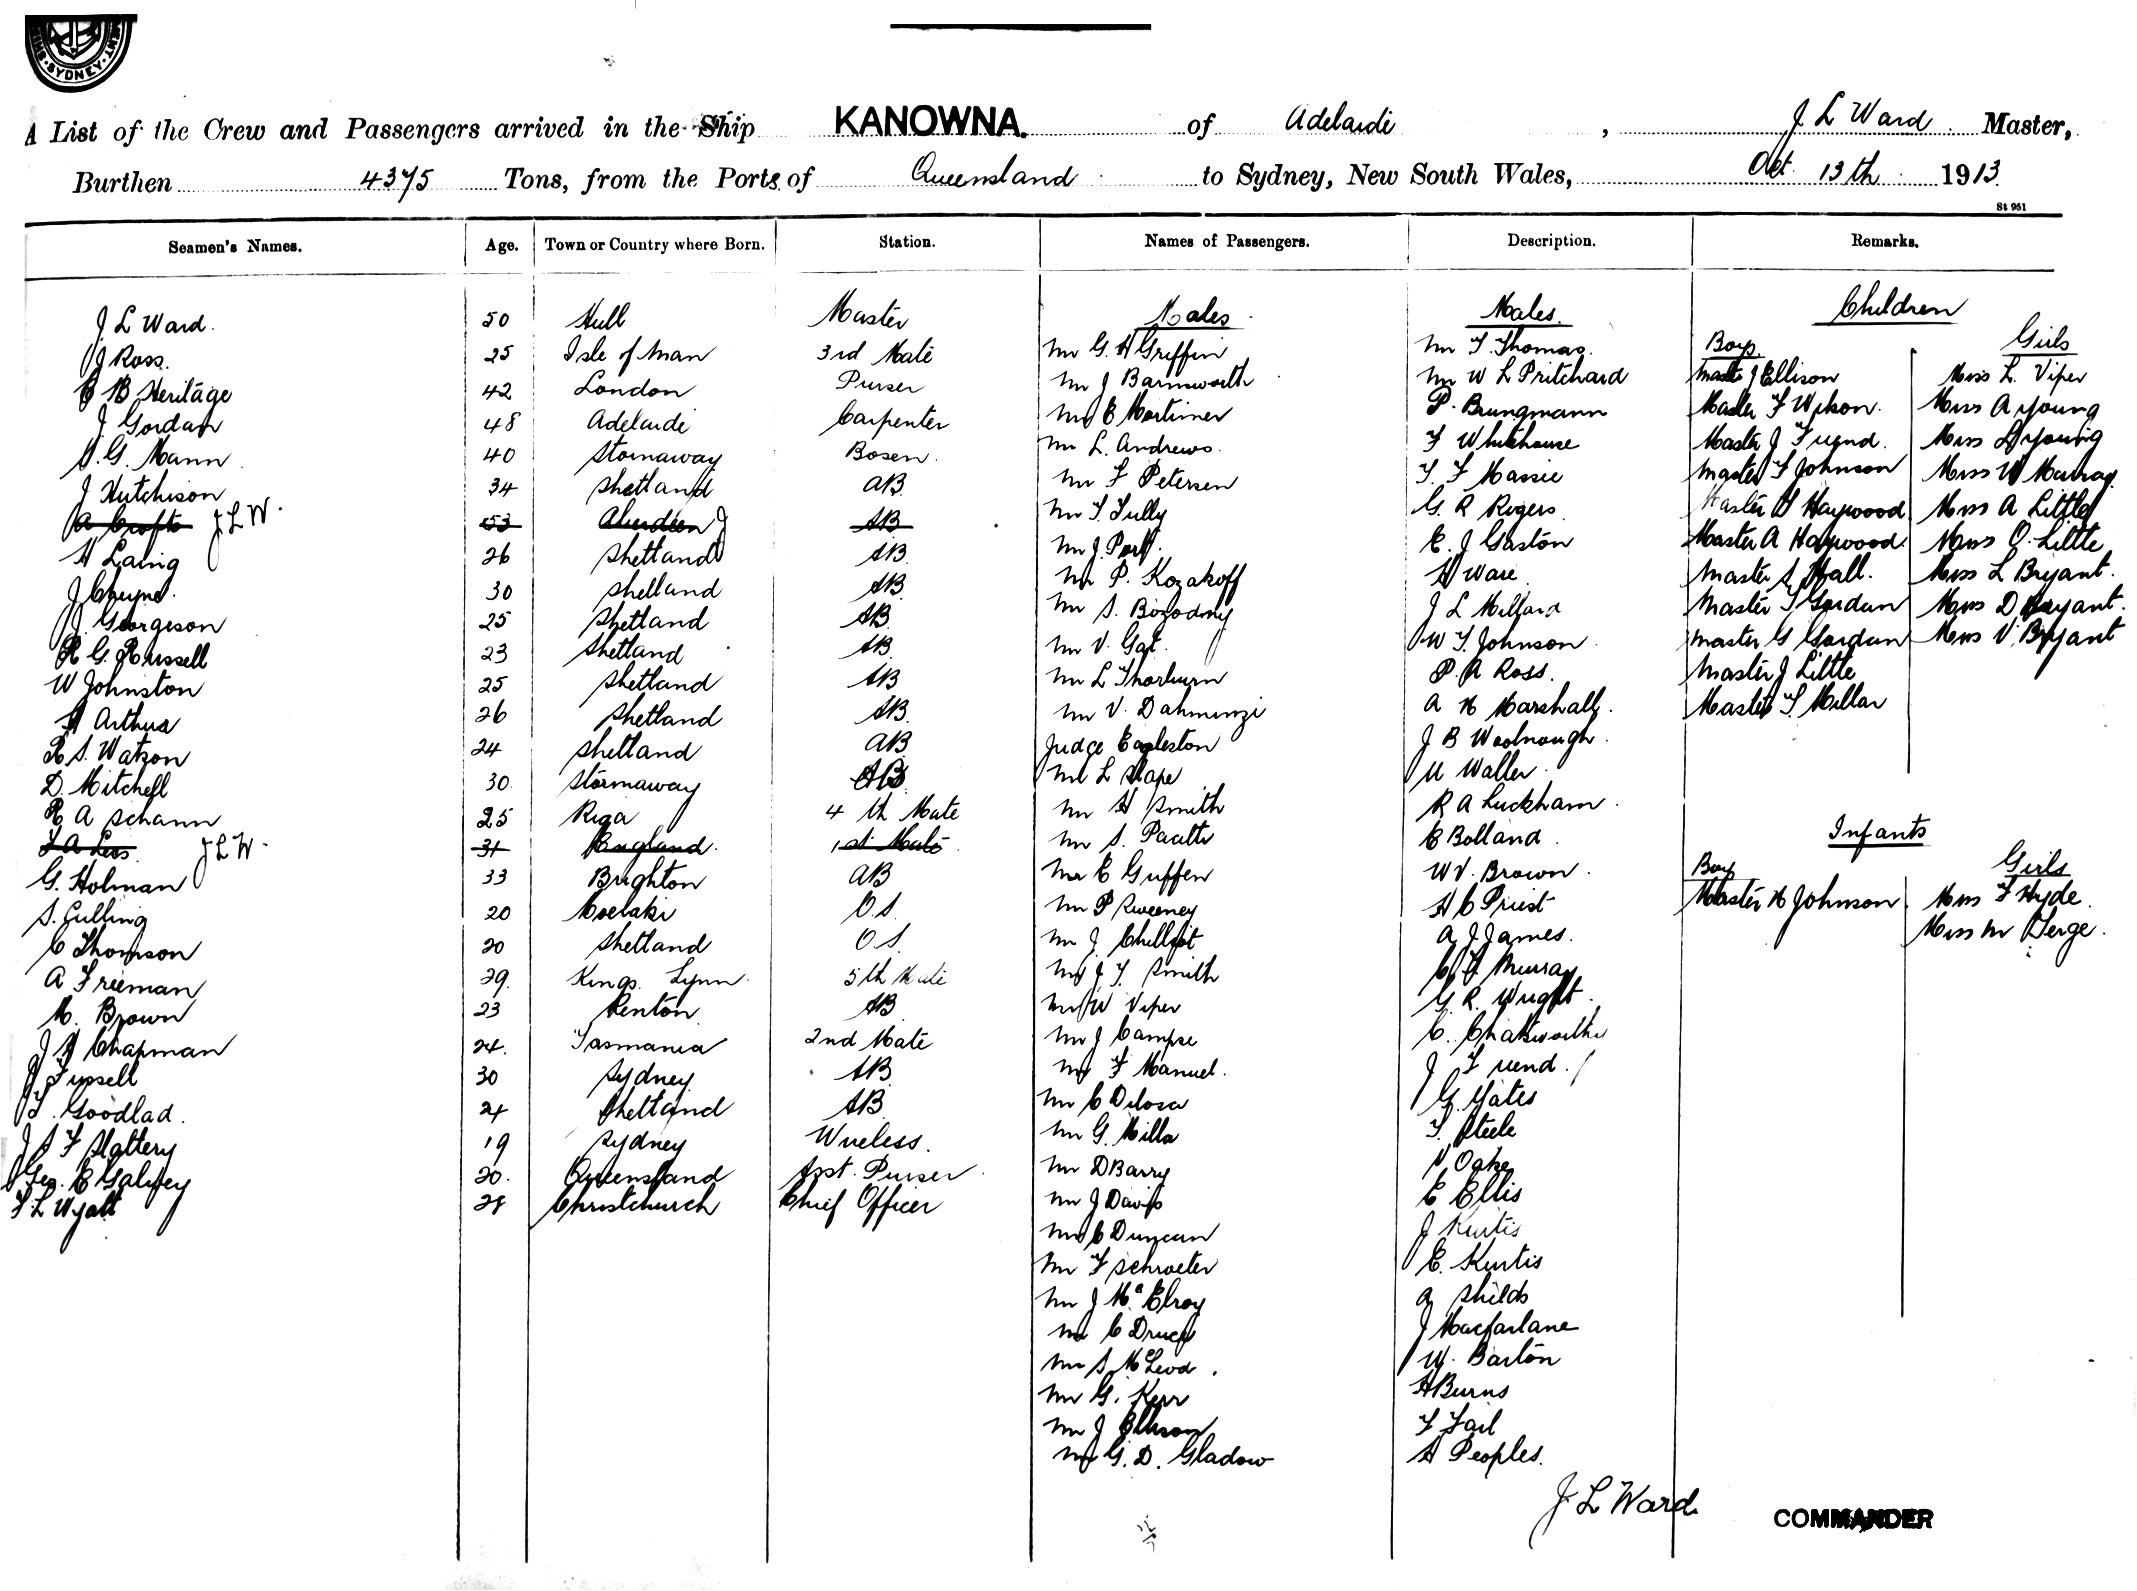 SYDNEY
A List of the Crew and Passengers arrived in the Ship KANOWNA. of Adelaide, J L Ward Master,
Burthen 4375 Tons, from the Ports of Queensland to Sydney, New South Wales, Oct 13th 1913
St 951
Seamen's Names. Age. Town or Country where Born. Station. Names of Passengers. Description. Remarks.
J L Ward. 50 Hull Master
J Ross. 25 Isle of Man 3rd Mate
C B Heritage 42 London Purser
J. Gordan 48 Adelaide Carpenter
S. G. Mann 40 Stornaway Bosen.
J Hutchison 34 Shetland AB
A Crofts J L W. 53 Aberdeen AB
H Laing 26 Shetland AB
J Cheyne. 30 Shetland AB
J. Georgeson 25 Shetland AB
R G. Russell 23 Shetland AB
W Johnston 25 Shetland AB
H Arthur 26 Shetland AB
R S. Watson 24 Shetland AB
D. Mitchell 30 Stornaway AB
R A Schann 25 Riga 4th Mate
J L W. 31 England. 1st Mate
G. Holman 33 Brighton AB
S. Gulling 20 O.S.
C Thomson 20 Shetland O.S.
A Freeman 29. Kings Lynn. 5th Mate
M. Brown 23 Penton AB
J Chapman 24. Tasmania 2nd Mate
J 30 Sydney AB
T. Goodlad. 24 Shetland AB
J S F Slattery 19 Sydney Wireless.
Geo. E Galvey 20. Queensland Asst. Purser
F. L Wyatt 28 Christchurch Chief Officer
Males
Mr G. H Griffin
Mr J Barnworth
Mr E Mortimer
Mr L. Andrews.
Mr F Petersen
Mr T. Tully
Mr J. Port.
Mr P. Kozakoff
Mr S. Borodny
Mr V. Gat.
Mr L Thorburn
Mr V. Dahminzi
Judge Eagleston
Mr L Slape
Mr H Smith
Mr S.
Mr E Guffen
Mr P Sweeney
Mr J.
Mr J T. Smith
Mr W Viper
Mr J Campse
Mr F Manuel.
Mr C Delosa
Mr G. Milla
Mr D Barry
Mr J Davis
Mr C Duncan
Mr F Schroeter
Mr J McElroy
Mr C Druce
Mr S. McLeod.
Mr G. Kerr
Mr J Ellison
Mr G. D. Gladow
Males.
Mr T. Thomas.
Mr W L Pritchard
P. Brungmann
F Whitehouse
T. F Massie
G. R Rogers
E. J Gaston
H Ware
J L Milford
W T. Johnson
P A Ross.
A H Marshall.
J B Woolnough.
M Waller.
R A Luckham.
E Bolland.
W V. Brown.
H C Priest
A J James.
C F Murray
G. R. Wright.
C. Chatsworth
J Friend.
G. Yates
T. Steele
V Oake
E Ellis
J Kurtis
E. Kurtis
A Shields
J Macfarlane
W. Barton
H Burns
F Tail
A Peoples.
Children
Boys. Girls
Master J Ellison Miss L. Viper
Master F Wilson. Miss A Young
Master J Friend. Miss L Young
Master F Johnson Miss W Murray
Master H Haywood Miss A Little
Master A Haywood. Miss O. Little
Master S Hall. Miss L Bryant.
Master T Gordan Miss D Bryant.
Master G Gordan Miss V. Bryant
Master J Little
Master T. Millar
Infants
Boys Girls
Master H Johnson. Miss F Hyde.
Miss M Berge.
J. L Ward
COMMANDER